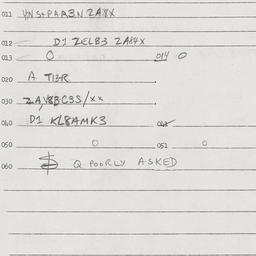 011 VNS+PAR3N ZA8X
012 D1 ZELB3 ZA84X
013 O 014 O
020 A T13R
030 ZA,V8BCBS/xx
040 D1 KL8AMK3
050 O 051 O
060 $ Q POORLY ASKED